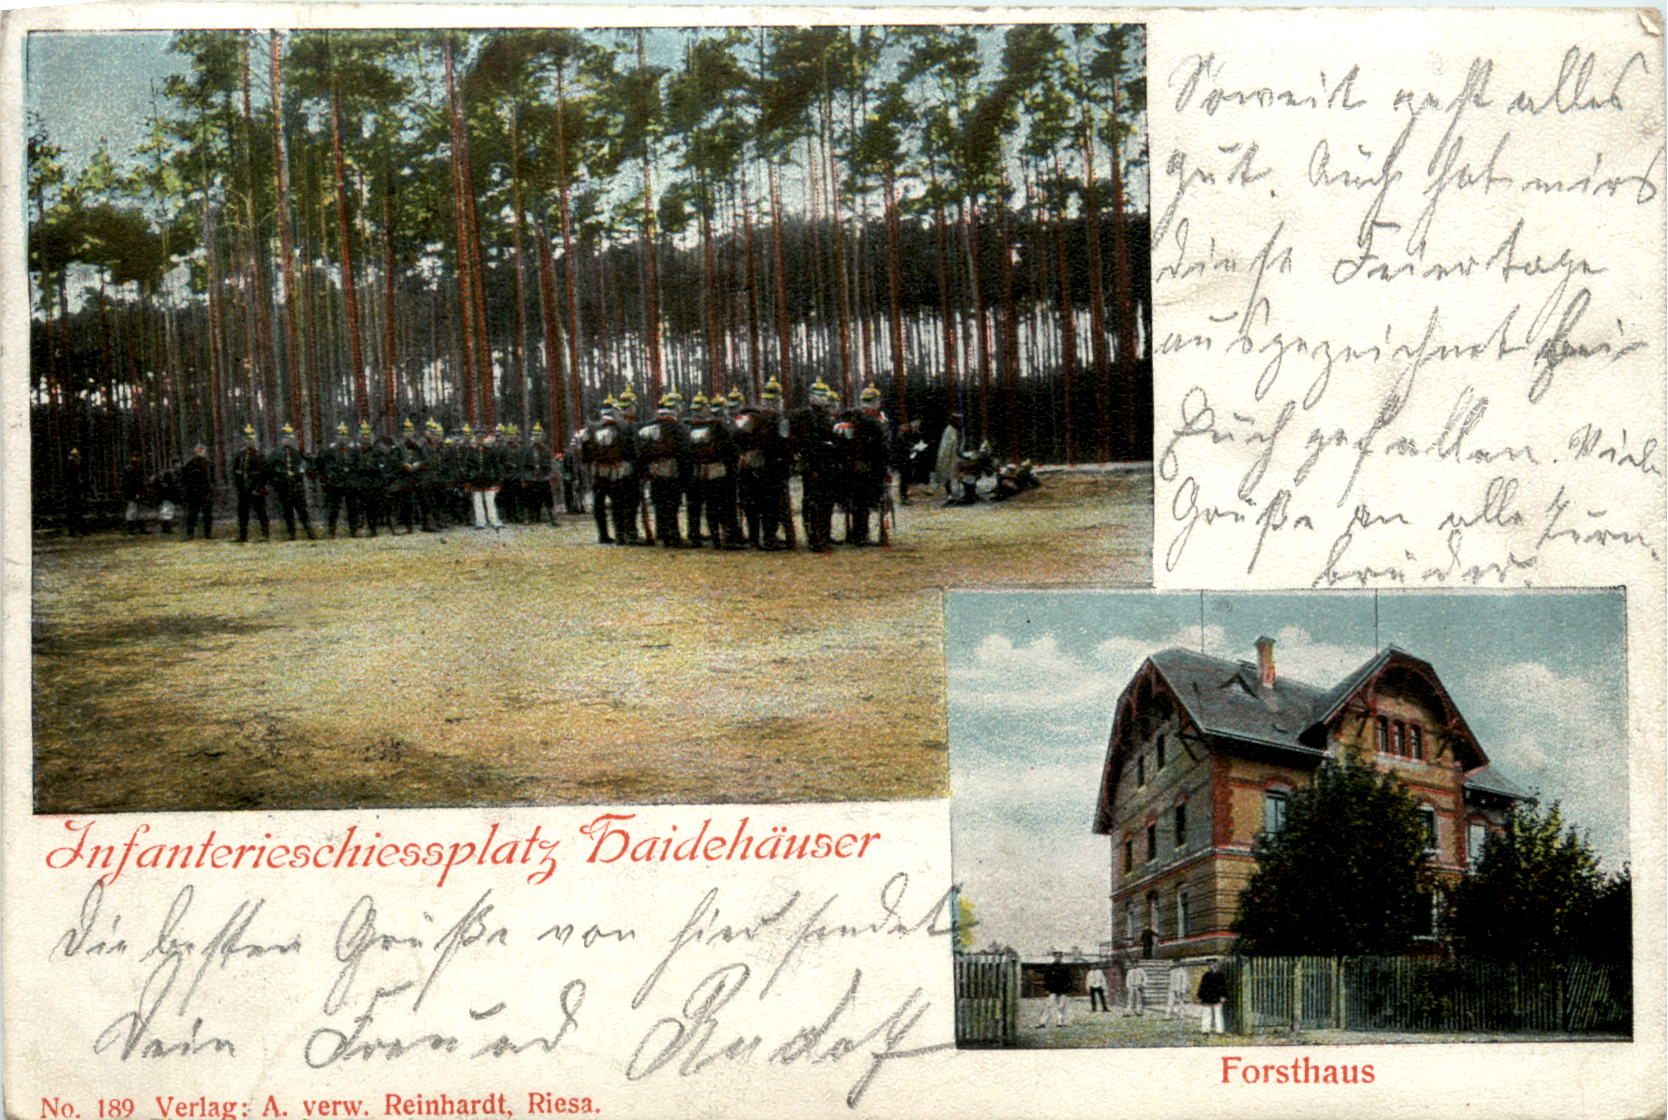 Soweit geht alles
gut. Auch hat mirs
diese Feiertage
ausgezeichnet bei
Euch gefallen. Viele
Grüße an alle Turn-
brüder.
Infanterieschiessplatz Haidehäuser
Die besten Grüße von hier sendet
Dein Freund Rudolf
Forsthaus
No. 189 Verlag: A. verw. Reinhardt, Riesa.